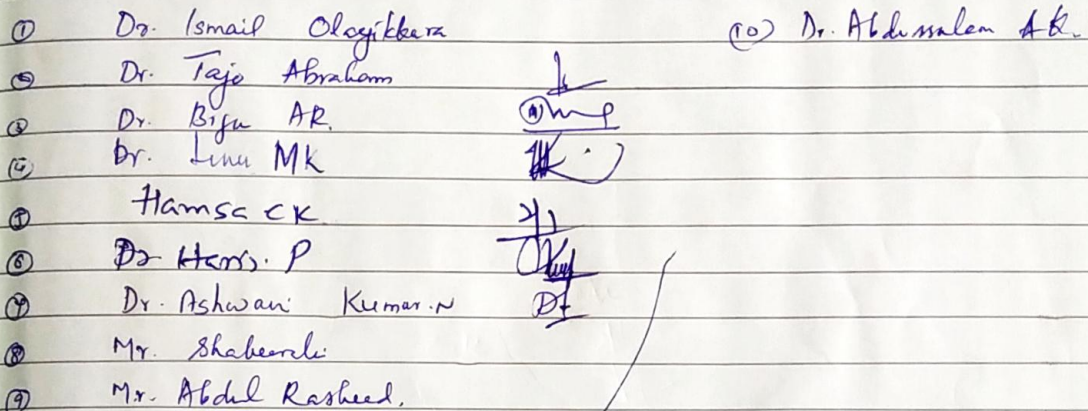 ① Dr. Ismail Olayikkara
② Dr. Tajo Abraham
③ Dr. Biju AR.
④ Dr. Linu MK
⑤ Hamsa CK
⑥ Dr Haris. P
⑦ Dr. Ashwani Kumar.N
⑧ Mr. Shabeerali
⑨ Mr. Abdul Rasheed.
(10) Dr. Abdussalam A.K.